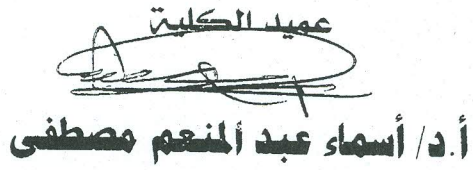 عميد الكلية
أ.د/ أسماء عبد المنعم مصطفى